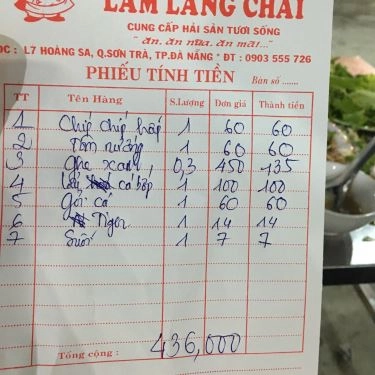 LÀM LÀNG CHÀI
CUNG CẤP HẢI SẢN TƯƠI SỐNG
"ăn, ăn nữa, ăn mãi..."
ĐC: L7 HOÀNG SA, Q.SƠN TRÀ, TP.ĐÀ NẴNG * ĐT : 0903 555 726
PHIẾU TÍNH TIỀN Bàn số ........
TT Tên Hàng S.Lượng Đơn giá Thành tiền
1 Chíp chíp hấp 1 60 60
2 Tôm nướng 1 60 60
3 Ghẹ xanh 0,3 450 135
4 Lẩu cá bớp 1 100 100
5 Gỏi cá 1 60 60
6 Tiger 1 14 14
7 Suối 1 7 7
Tổng cộng : 436,000